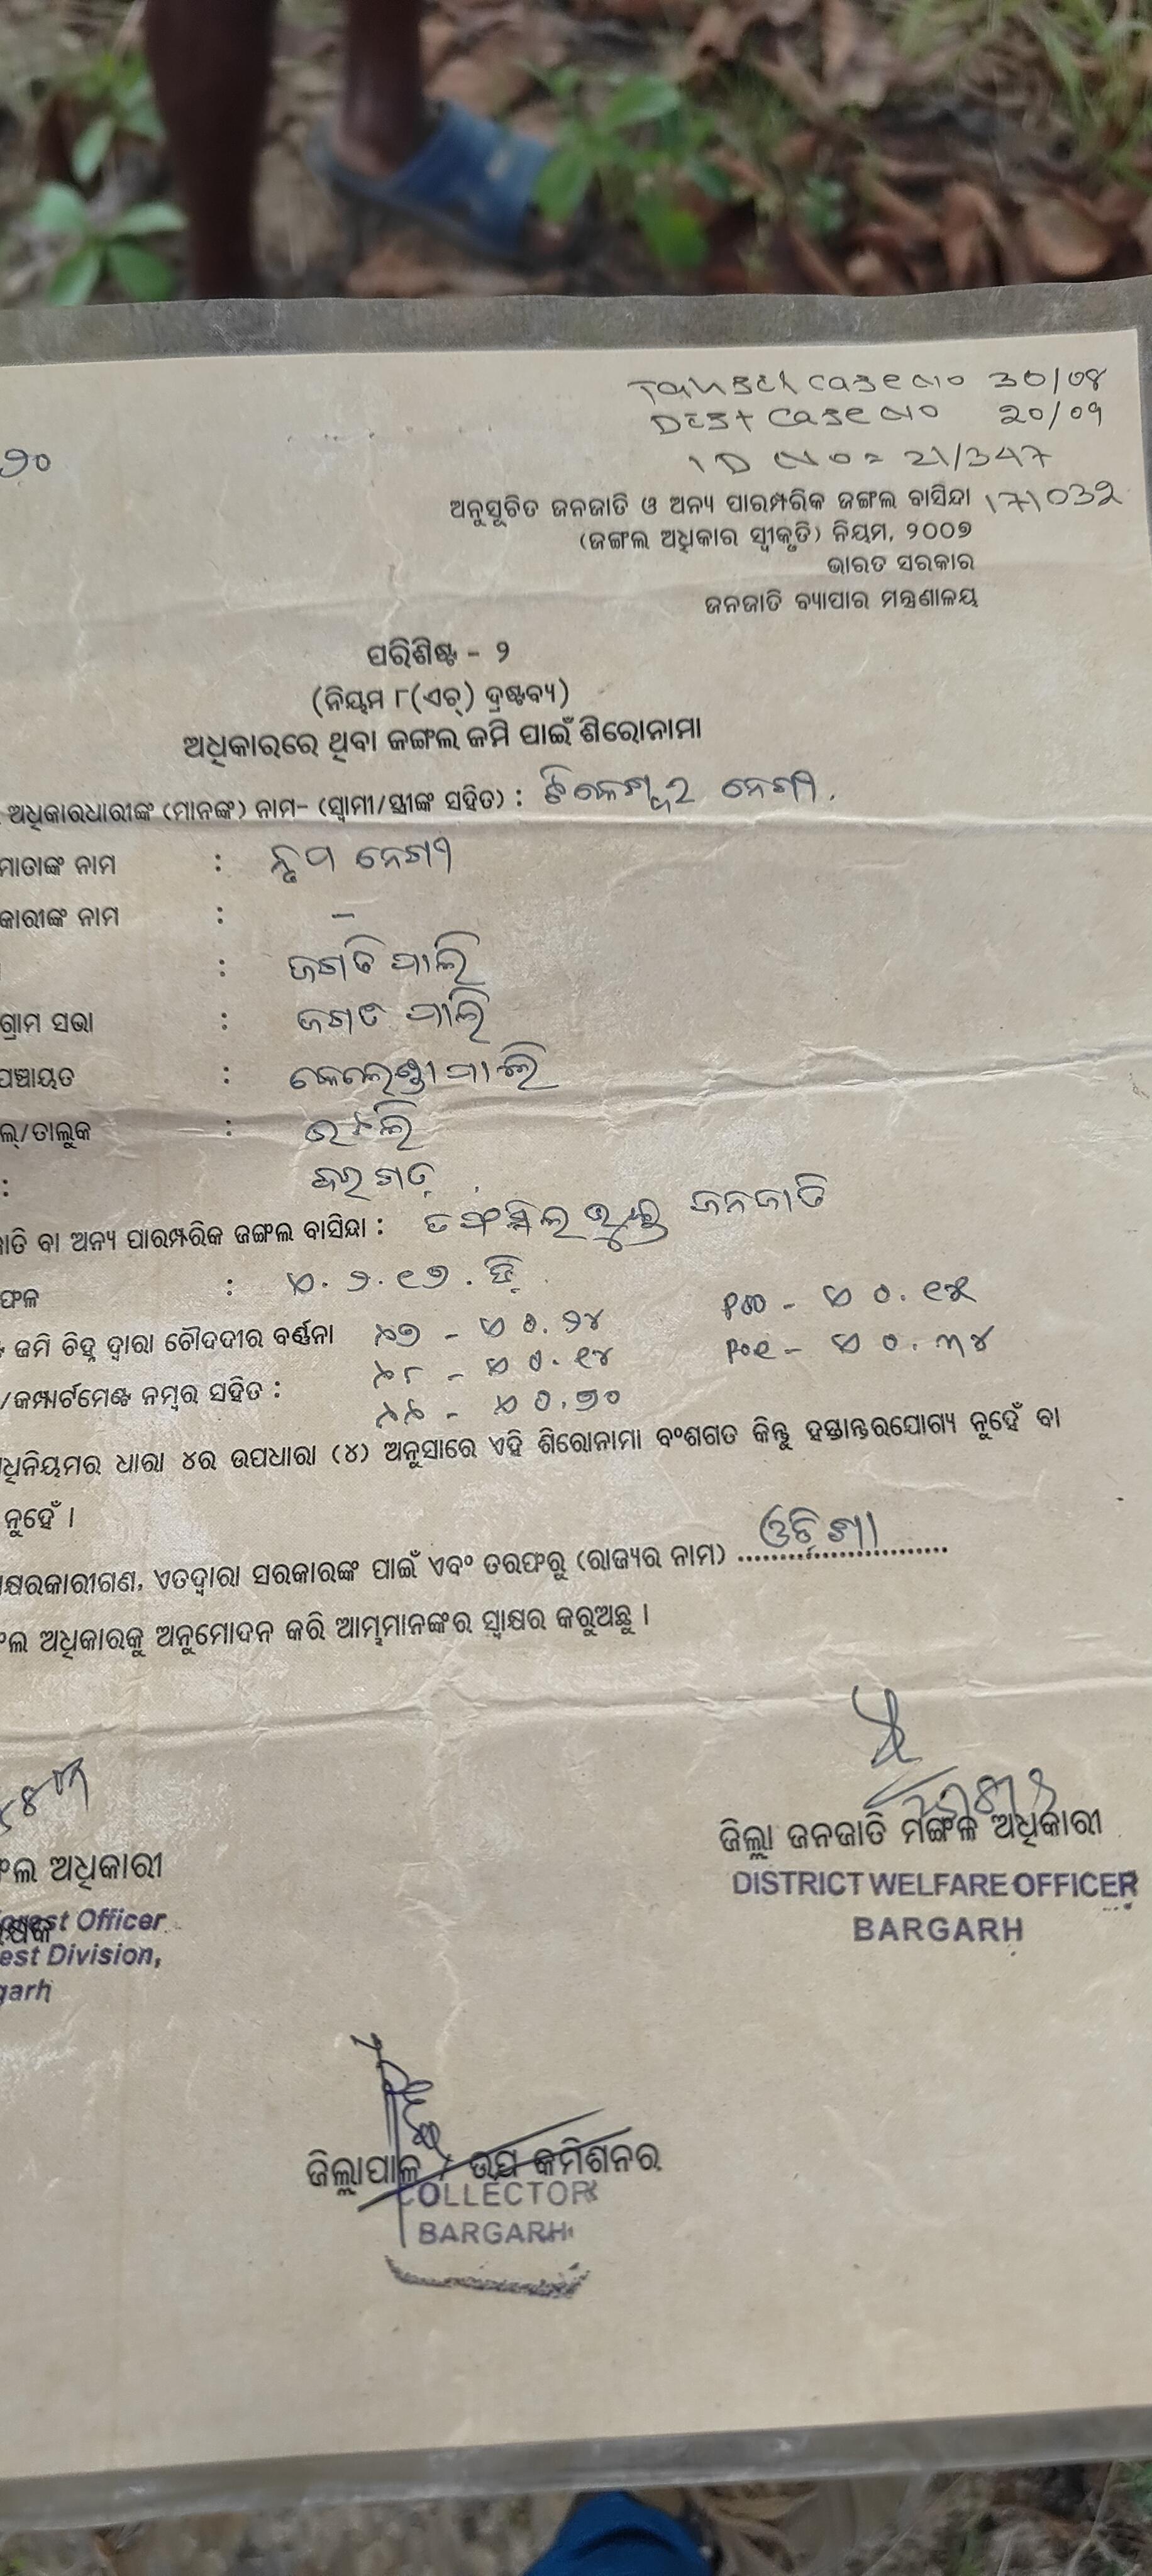 Tahsil case no 30/08
Dist case no 20/09
ID No = 21/347
୬୦
ଅନୁସୂଚିତ ଜନଜାତି ଓ ଅନ୍ୟ ପାରମ୍ପରିକ ଜଙ୍ଗଲ ବାସିନ୍ଦା 171032
(ଜଙ୍ଗଲ ଅଧିକାର ସ୍ୱୀକୃତି) ନିୟମ, ୨୦୦୭
ଭାରତ ସରକାର
ଜନଜାତି ବ୍ୟାପାର ମନ୍ତ୍ରଣାଳୟ
ପରିଶିଷ୍ଟ - ୨
(ନିୟମ ୮(ଏଚ୍) ଦ୍ରଷ୍ଟବ୍ୟ)
ଅଧିକାରରେ ଥିବା ଜଙ୍ଗଲ ଜମି ପାଇଁ ଶିରୋନାମା
ଅଧିକାରଧାରୀଙ୍କ (ମାନଙ୍କ) ନାମ- (ସ୍ୱାମୀ/ସ୍ତ୍ରୀଙ୍କ ସହିତ) : ଟିକେଶ୍ୱର ନେଗୀ
ମାତାଙ୍କ ନାମ : ନେଗୀ
କାରୀଙ୍କ ନାମ : –
: ଜଗତି ପାଲି
ଗ୍ରାମ ସଭା : ଜଗତ ପାଲି
ପଞ୍ଚାୟତ : କେଲେଣ୍ଡାପାଲି
ଲ୍/ତାଲୁକ :
: ବରଗଡ଼
ଜାତି ବା ଅନ୍ୟ ପାରମ୍ପରିକ ଜଙ୍ଗଲ ବାସିନ୍ଦା : ତଫସିଲଭୁକ୍ତ ଜନଜାତି
ଫଳ : ଏ. ୨.୧୭. ଡି.
ଜମି ଚିହ୍ନ ଦ୍ୱାରା ଚୌଦଦୀର ବର୍ଣ୍ଣନା ୯୭ - ଏ ୦.୨୪ ୧୦୦ - ଏ ୦.୧୫
/କମ୍ପାର୍ଟମେଣ୍ଟ ନମ୍ବର ସହିତ : ୯୮ - ଏ ୦.୧୪ ୧୦୧ - ଏ ୦.୩୪
୯୯ - ଏ ୦.୭୦
ଧିନିୟମର ଧାରା ୪ର ଉପଧାରା (୪) ଅନୁସାରେ ଏହି ଶିରୋନାମା ବଂଶଗତ କିନ୍ତୁ ହସ୍ତାନ୍ତରଯୋଗ୍ୟ ନୁହେଁ ବା
ନୁହେଁ ।
କ୍ଷରକାରୀଗଣ, ଏତଦ୍ୱାରା ସରକାରଙ୍କ ପାଇଁ ଏବଂ ତରଫରୁ (ରାଜ୍ୟର ନାମ) ଓଡ଼ିଶା
ଲ ଅଧିକାରକୁ ଅନୁମୋଦନ କରି ଆମ୍ଭମାନଙ୍କର ସ୍ୱାକ୍ଷର କରୁଅଛୁ ।
ଲ ଅଧିକାରୀ
orest Officer
est Division,
garh
ଜିଲ୍ଲା ଜନଜାତି ମଙ୍ଗଳ ଅଧିକାରୀ
DISTRICT WELFARE OFFICER
BARGARH
ଜିଲ୍ଲାପାଳ / ଉପ କମିଶନର
COLLECTOR
BARGARH